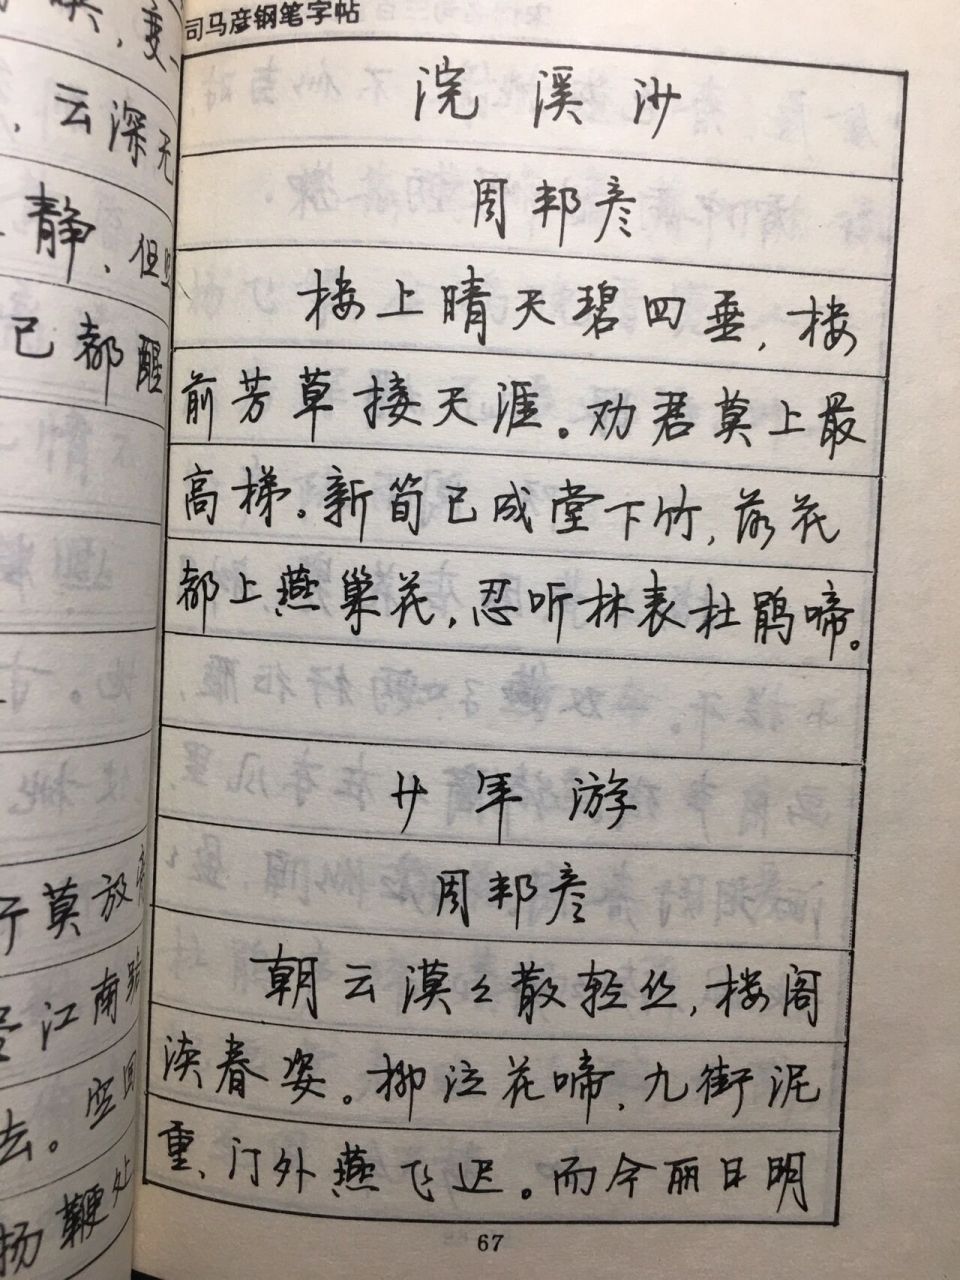 司马彦钢笔字帖
浣溪沙
周邦彦
楼上晴天碧四垂，楼
前芳草接天涯。劝君莫上最
高梯。新笋已成堂下竹，落花
都上燕巢花，忍听林表杜鹃啼。
少年游
周邦彦
朝云漠々散轻丝，楼阁
淡春姿。柳泣花啼，九街泥
重，门外燕飞迟。而今丽日明
67
云深无
静，但
已都醒
莫放
江南
去。空
扬鞭处